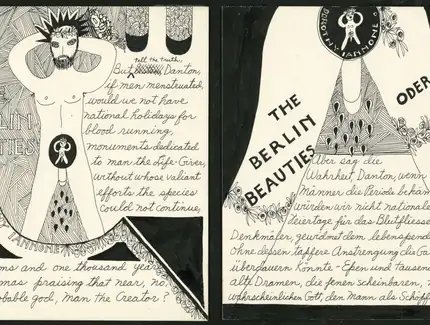 RLIN
TIES
tell the truth,
But Danton,
if men menstruated,
would we not have
national holidays for
blood running,
monuments dedicated
to man the Life-Giver,
without whose valiant
efforts the species
could not continue,
IANNONE
ms and one thousand year
mas praising that near, no,
obable god, Man the Creator?
DOROTHY IANNONE
THE
BERLIN
BEAUTIES
ODER
Aber sag die
Wahrheit Danton, wenn
Männer die Periode bekäm
würden wir nicht nationale
Feiertage für das Blutfliesse
Denkmäler, gewidmet dem lebenspende
ohne dessen tapfere Anstrengung die Ga
überdauern könnte - Epen und tausend
alte Dramen, die jenen scheinbaren, n
wahrscheinlichen Gott, den Mann als Schöpf